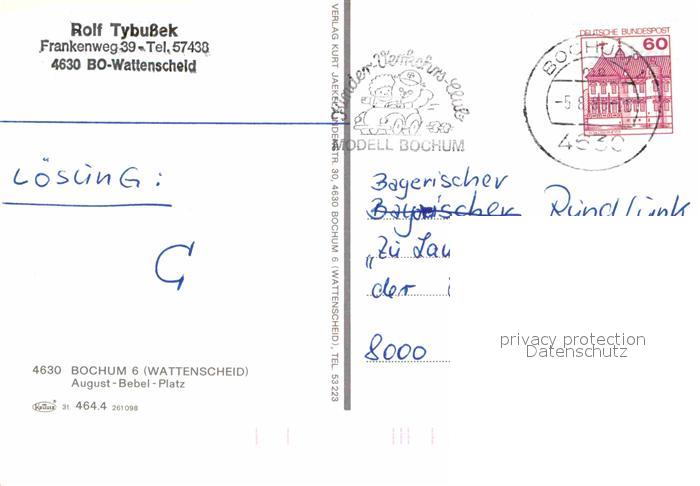 Rolf Tybußek
Frankenweg 39 - Tel. 57438
4630 BO-Wattenscheid
LÖSUNG:
G
4630 BOCHUM 6 (WATTENSCHEID)
August-Bebel-Platz
31 464.4 261098
4630 BOCHUM 6 (WATTENSCHEID), TEL. 53223
Kinder-Verkehrs-Club
MODELL BOCHUM
DEUTSCHE BUNDESPOST
60
BOCHUM
4630
Bayerischer
Bayerischer Rundfunk
„Zu
der
8000
privacy protection
Datenschutz